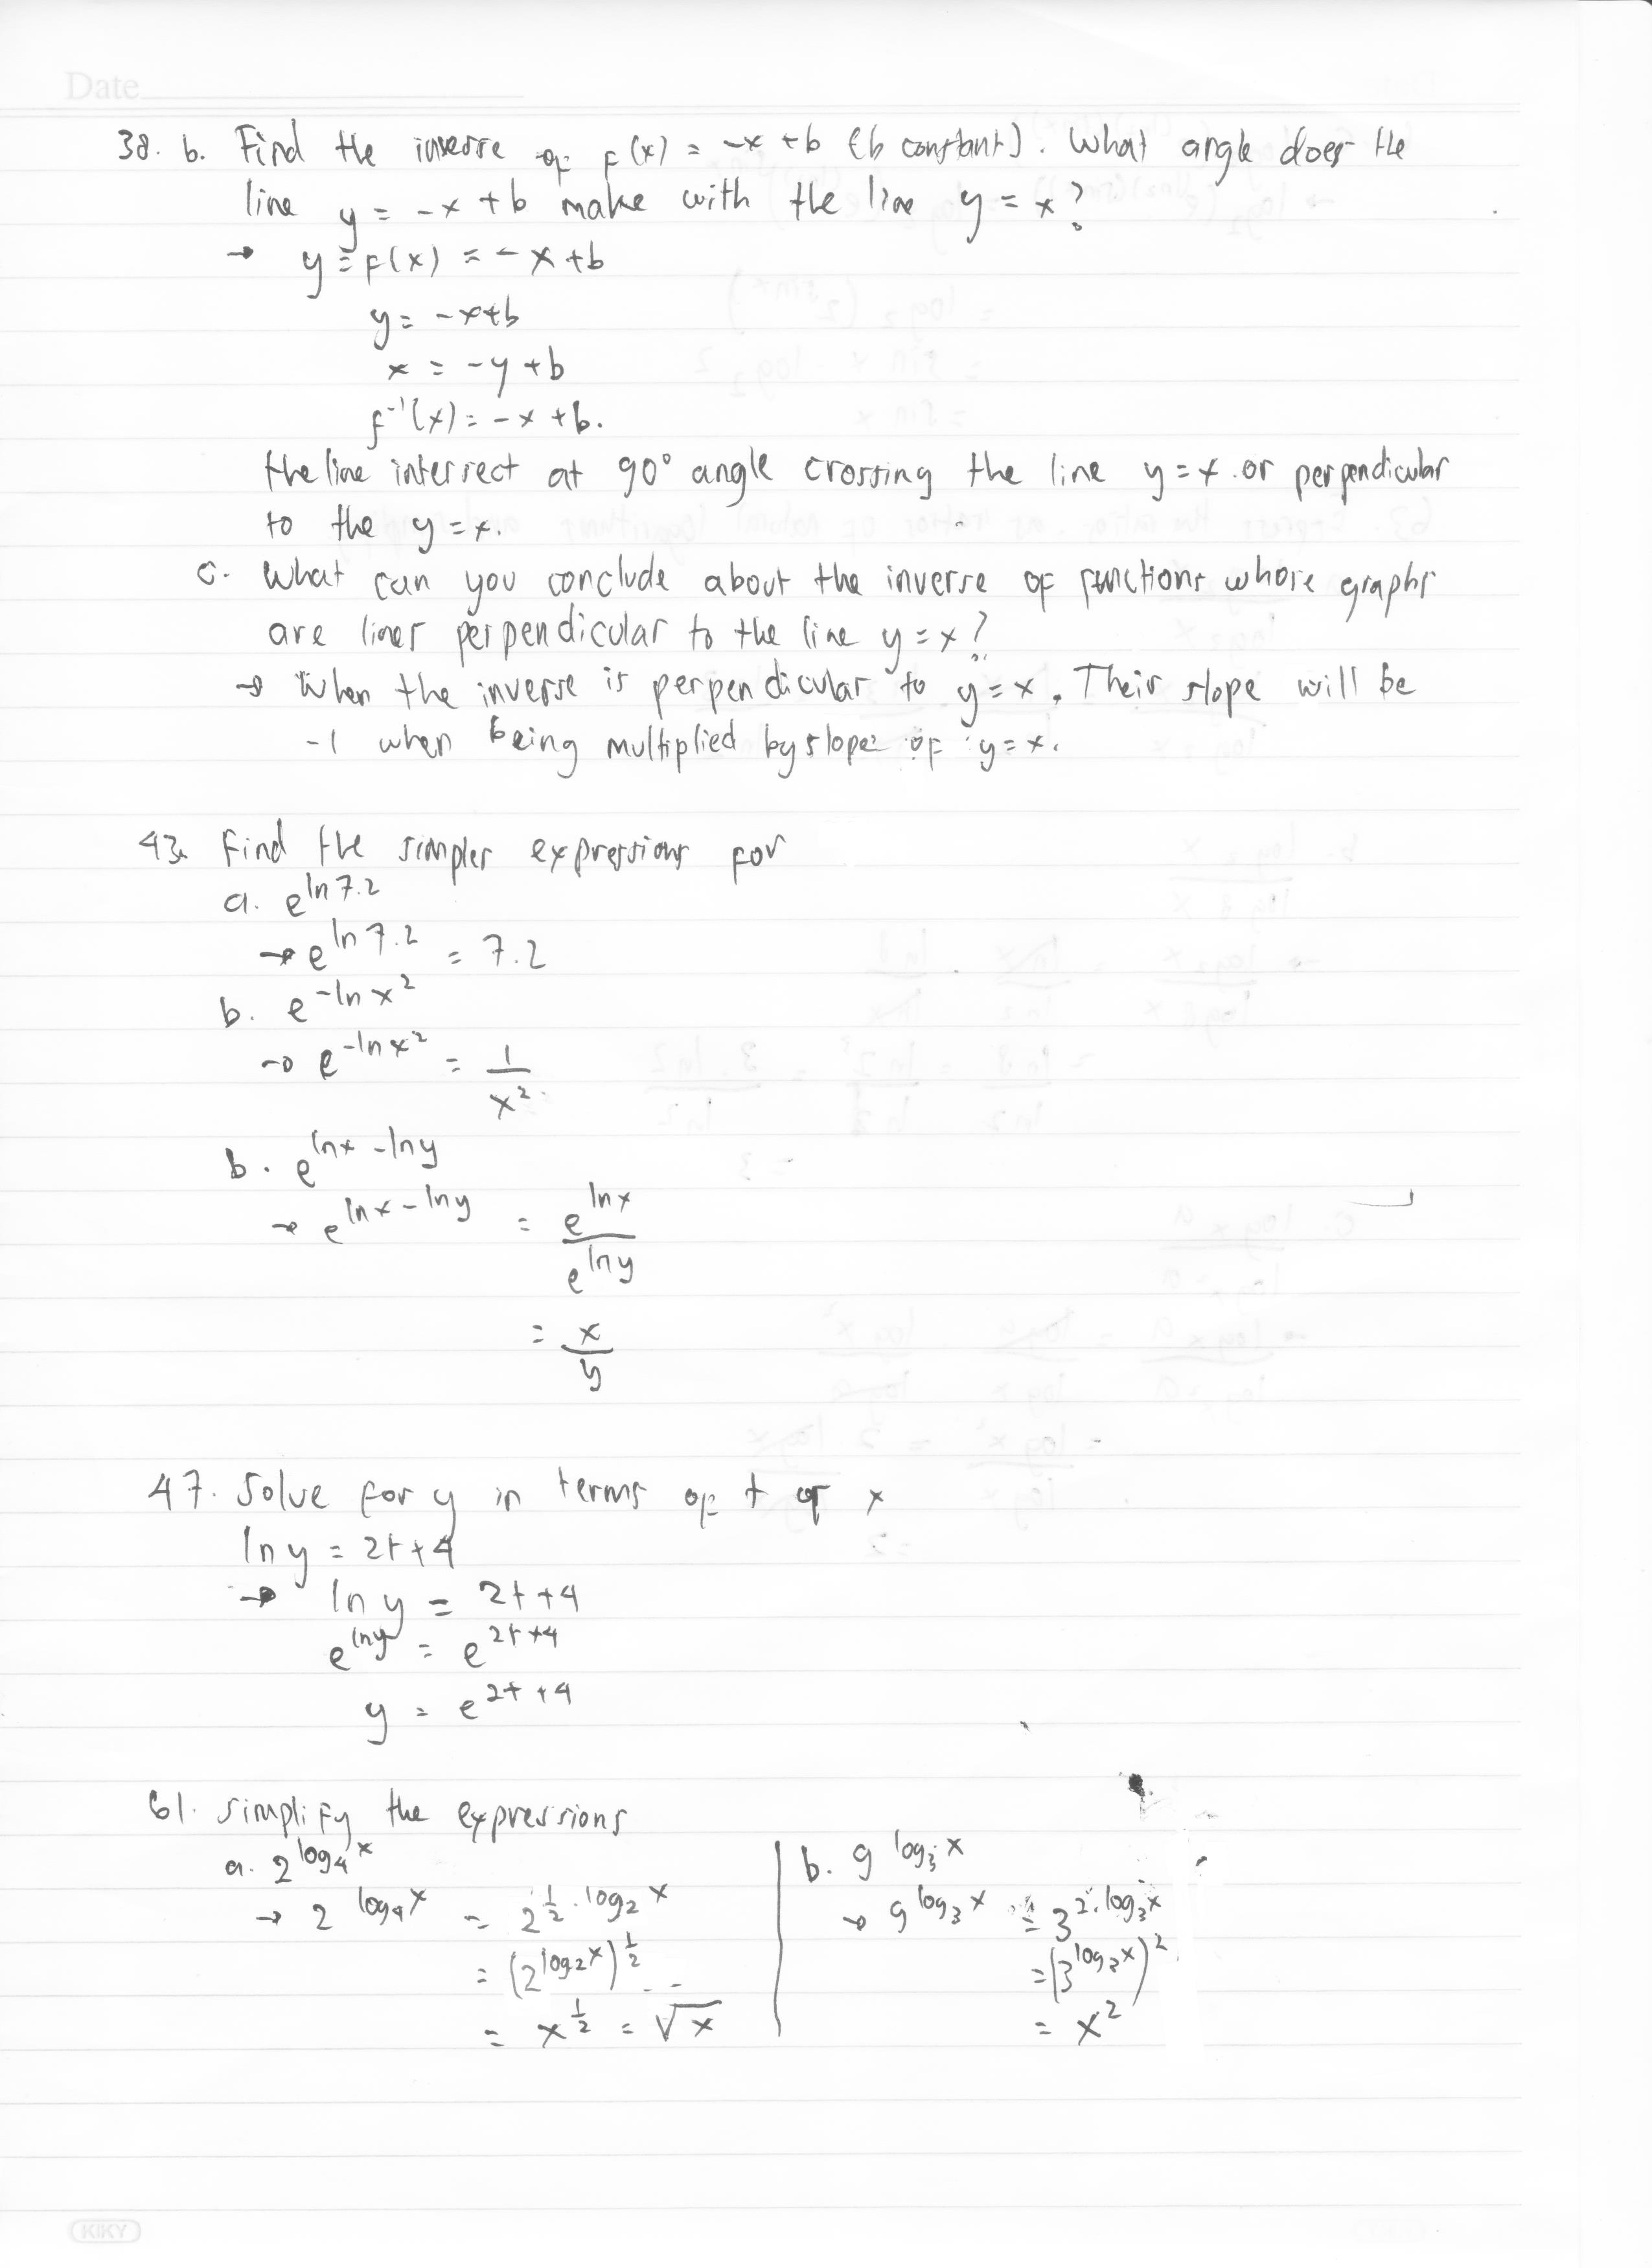 Date
38. b. Find the inverse of f(x) = -x + b (b constant). What angle does the
line y = -x + b make with the line y = x?
→ y = f(x) = -x + b
y = -x + b
x = -y + b
f⁻¹(x) = -x + b.
the line intersect at 90° angle crossing the line y = x or perpendicular
to the y = x.
c. What can you conclude about the inverse of functions whose graphs
are lines perpendicular to the line y = x?
→ When the inverse is perpendicular to y = x. Their slope will be
-1 when being multiplied by slope of y = x.
43. Find the simpler expressions for
a. e^(ln 7.2)
→ e^(ln 7.2) = 7.2
b. e^(-ln x²)
→ e^(-ln x²) = 1/x²
b. e^(ln x - ln y)
→ e^(ln x - ln y) = e^(ln x)/e^(ln y)
= x/y
47. Solve for y in terms of t or x
ln y = 2t + 4
→ ln y = 2t + 4
e^(ln y) = e^(2t + 4)
y = e^(2t + 4)
61. Simplify the expressions
a. 2^(log₄ x)
→ 2^(log₄ x) = 2^(½ · log₂ x)
= (2^(log₂ x))^½
= x^½ = √x
b. 9^(log₃ x)
→ 9^(log₃ x) = 3^(2 · log₃ x)
= (3^(log₃ x))²
= x²
KIKY